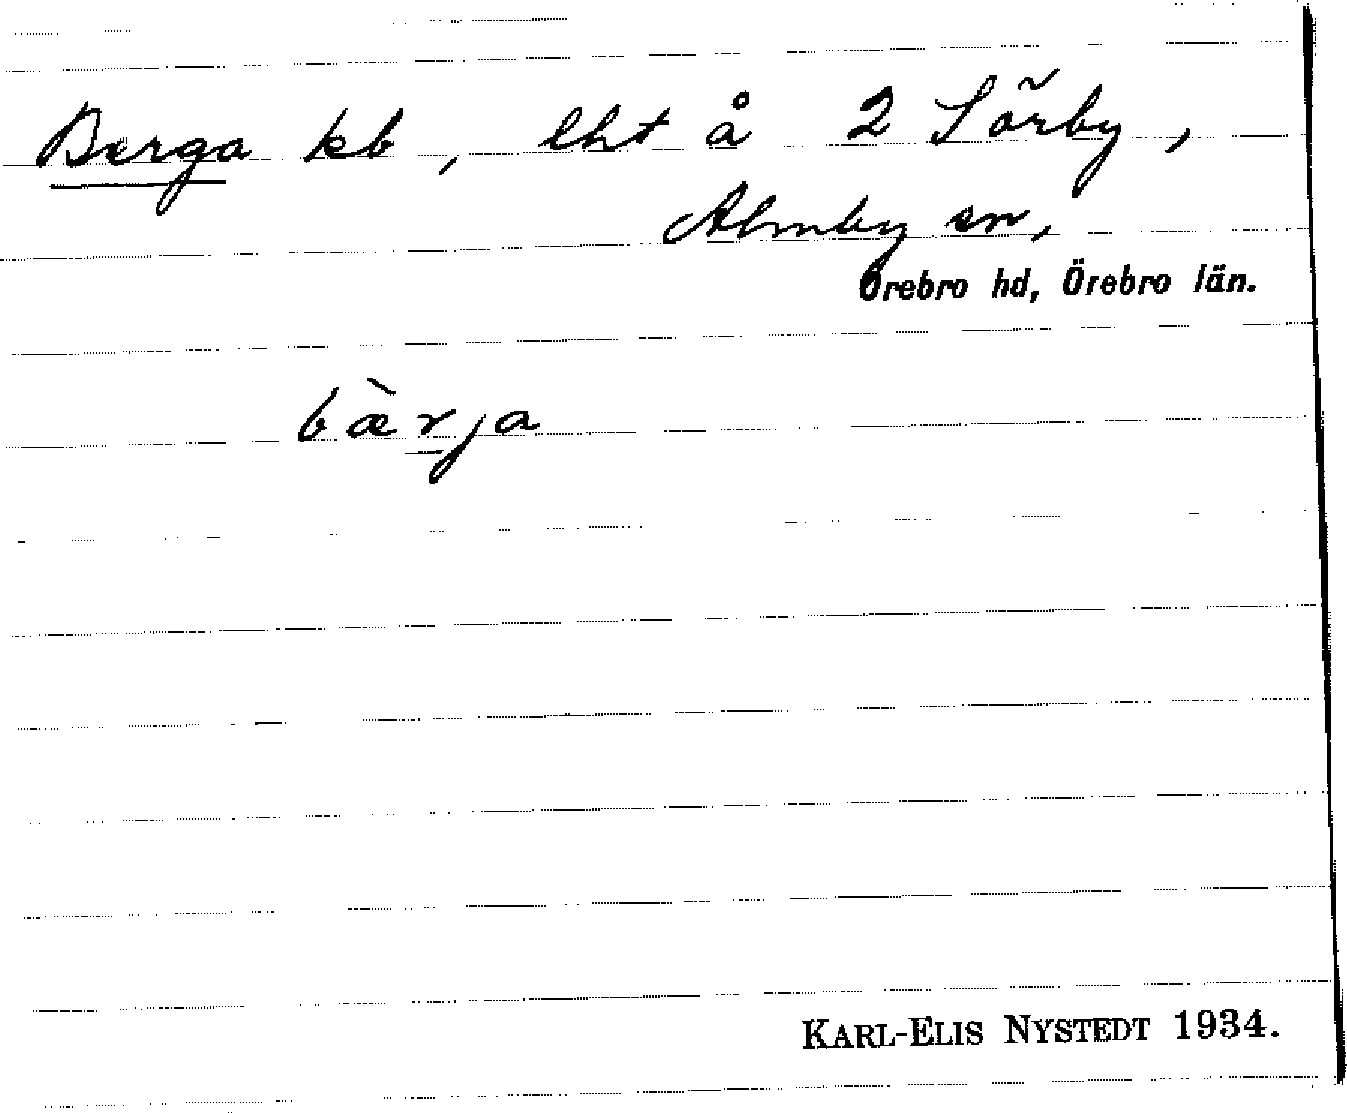 Berga kb, lht å 2 Sörby,
Almby sn,
Örebro hd, Örebro län.
bæ̀rja
KARL-ELIS NYSTEDT 1934.